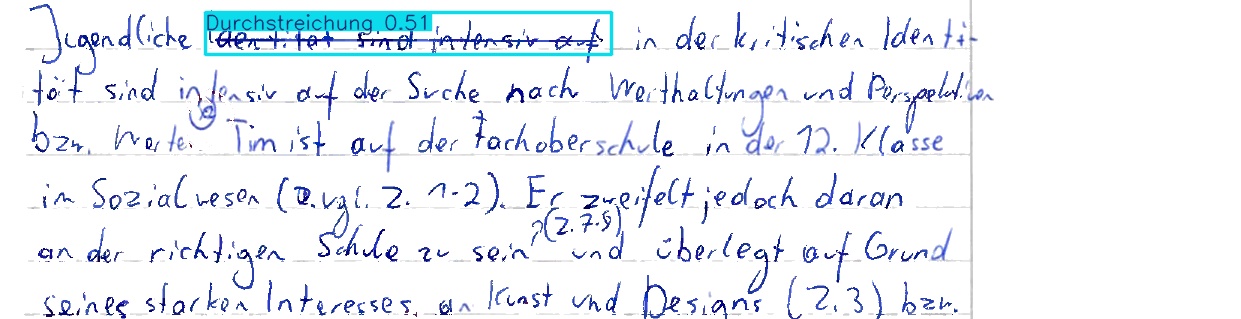 Durchstreichung 0.51
Jugendliche Identität sind intensiv auf in der kritischen Identi-
tät sind intensiv auf der Suche nach Werthaltungen und Perspektiven
bzw. Werte. Tim ist auf der Fachoberschule in der 12. Klasse
im Sozialwesen (vgl. Z. 1-2). Er zweifelt jedoch daran
an der richtigen Schule zu sein (Z. 7-8) und überlegt auf Grund
seines starken Interesses an Kunst und Designs (Z. 3) bzw.